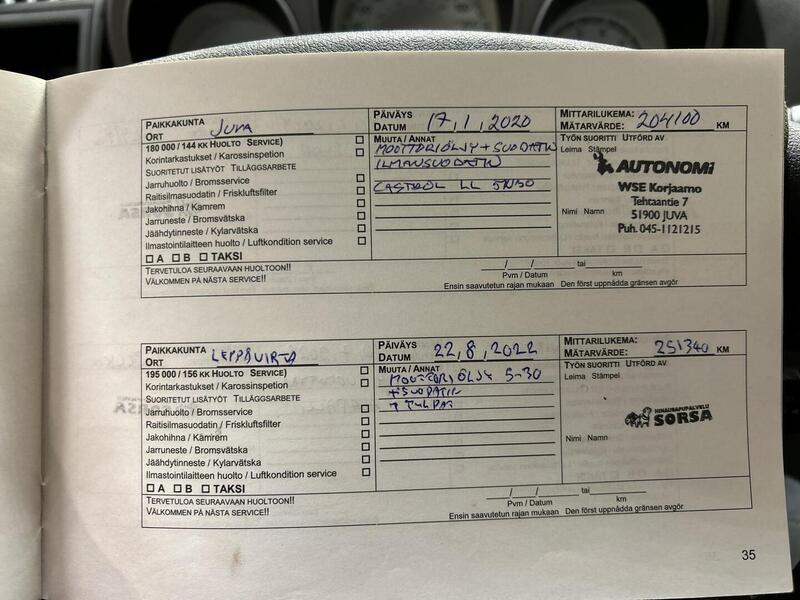 PAIKKAKUNTA
ORT JUVA
PÄIVÄYS
DATUM 17,1,2020
MITTARILUKEMA:
MÄTARVÄRDE: 204100 KM
180 000 / 144 KK HUOLTO SERVICE)
Korintarkastukset / Karossinspetion
SUORITETUT LISÄTYÖT TILLÄGGSARBETE
Jarruhuolto / Bromsservice
Raitisilmasuodatin / Friskluftsfilter
Jakohihna / Kamrem
Jarruneste / Bromsvätska
Jäähdytinneste / Kylarvätska
Ilmastointilaitteen huolto / Luftkondition service
A B TAKSI
MUUTA / ANNAT
MOOTTORIÖLJY + SUODATIN
ILMANSUODATIN
CASTROL LL 5W30
TYÖN SUORITTI UTFÖRD AV
Leima Stämpel
AUTONOMi
WSE Korjaamo
Tehtaantie 7
Nimi Namn 51900 JUVA
Puh. 045-1121215
TERVETULOA SEURAAVAAN HUOLTOON!!
VÄLKOMMEN PÅ NÄSTA SERVICE!!
/ / tai
Pvm / Datum km
Ensin saavutetun rajan mukaan Den först uppnådda gränsen avgör
PAIKKAKUNTA
ORT LEPPÄVIRTA
PÄIVÄYS
DATUM 22,8,2022
MITTARILUKEMA:
MÄTARVÄRDE: 251340 KM
195 000 / 156 KK HUOLTO SERVICE)
Korintarkastukset / Karossinspetion
SUORITETUT LISÄTYÖT TILLÄGGSARBETE
Jarruhuolto / Bromsservice
Raitisilmasuodatin / Friskluftsfilter
Jakohihna / Kämrem
Jarruneste / Bromsvätska
Jäähdytinneste / Kylarvätska
Ilmastointilaitteen huolto / Luftkondition service
A B TAKSI
MUUTA / ANNAT
MOOTTORIÖLJY 5-30
+ SUODATIN
+ TULPAT
TYÖN SUORITTI UTFÖRD AV
Leima Stämpel
HINAUSAPUPALVELU
SORSA
Nimi Namn
TERVETULOA SEURAAVAAN HUOLTOON!!
VÄLKOMMEN PÅ NÄSTA SERVICE!!
/ / tai
Pvm / Datum km
Ensin saavutetun rajan mukaan Den först uppnådda gränsen avgör
35